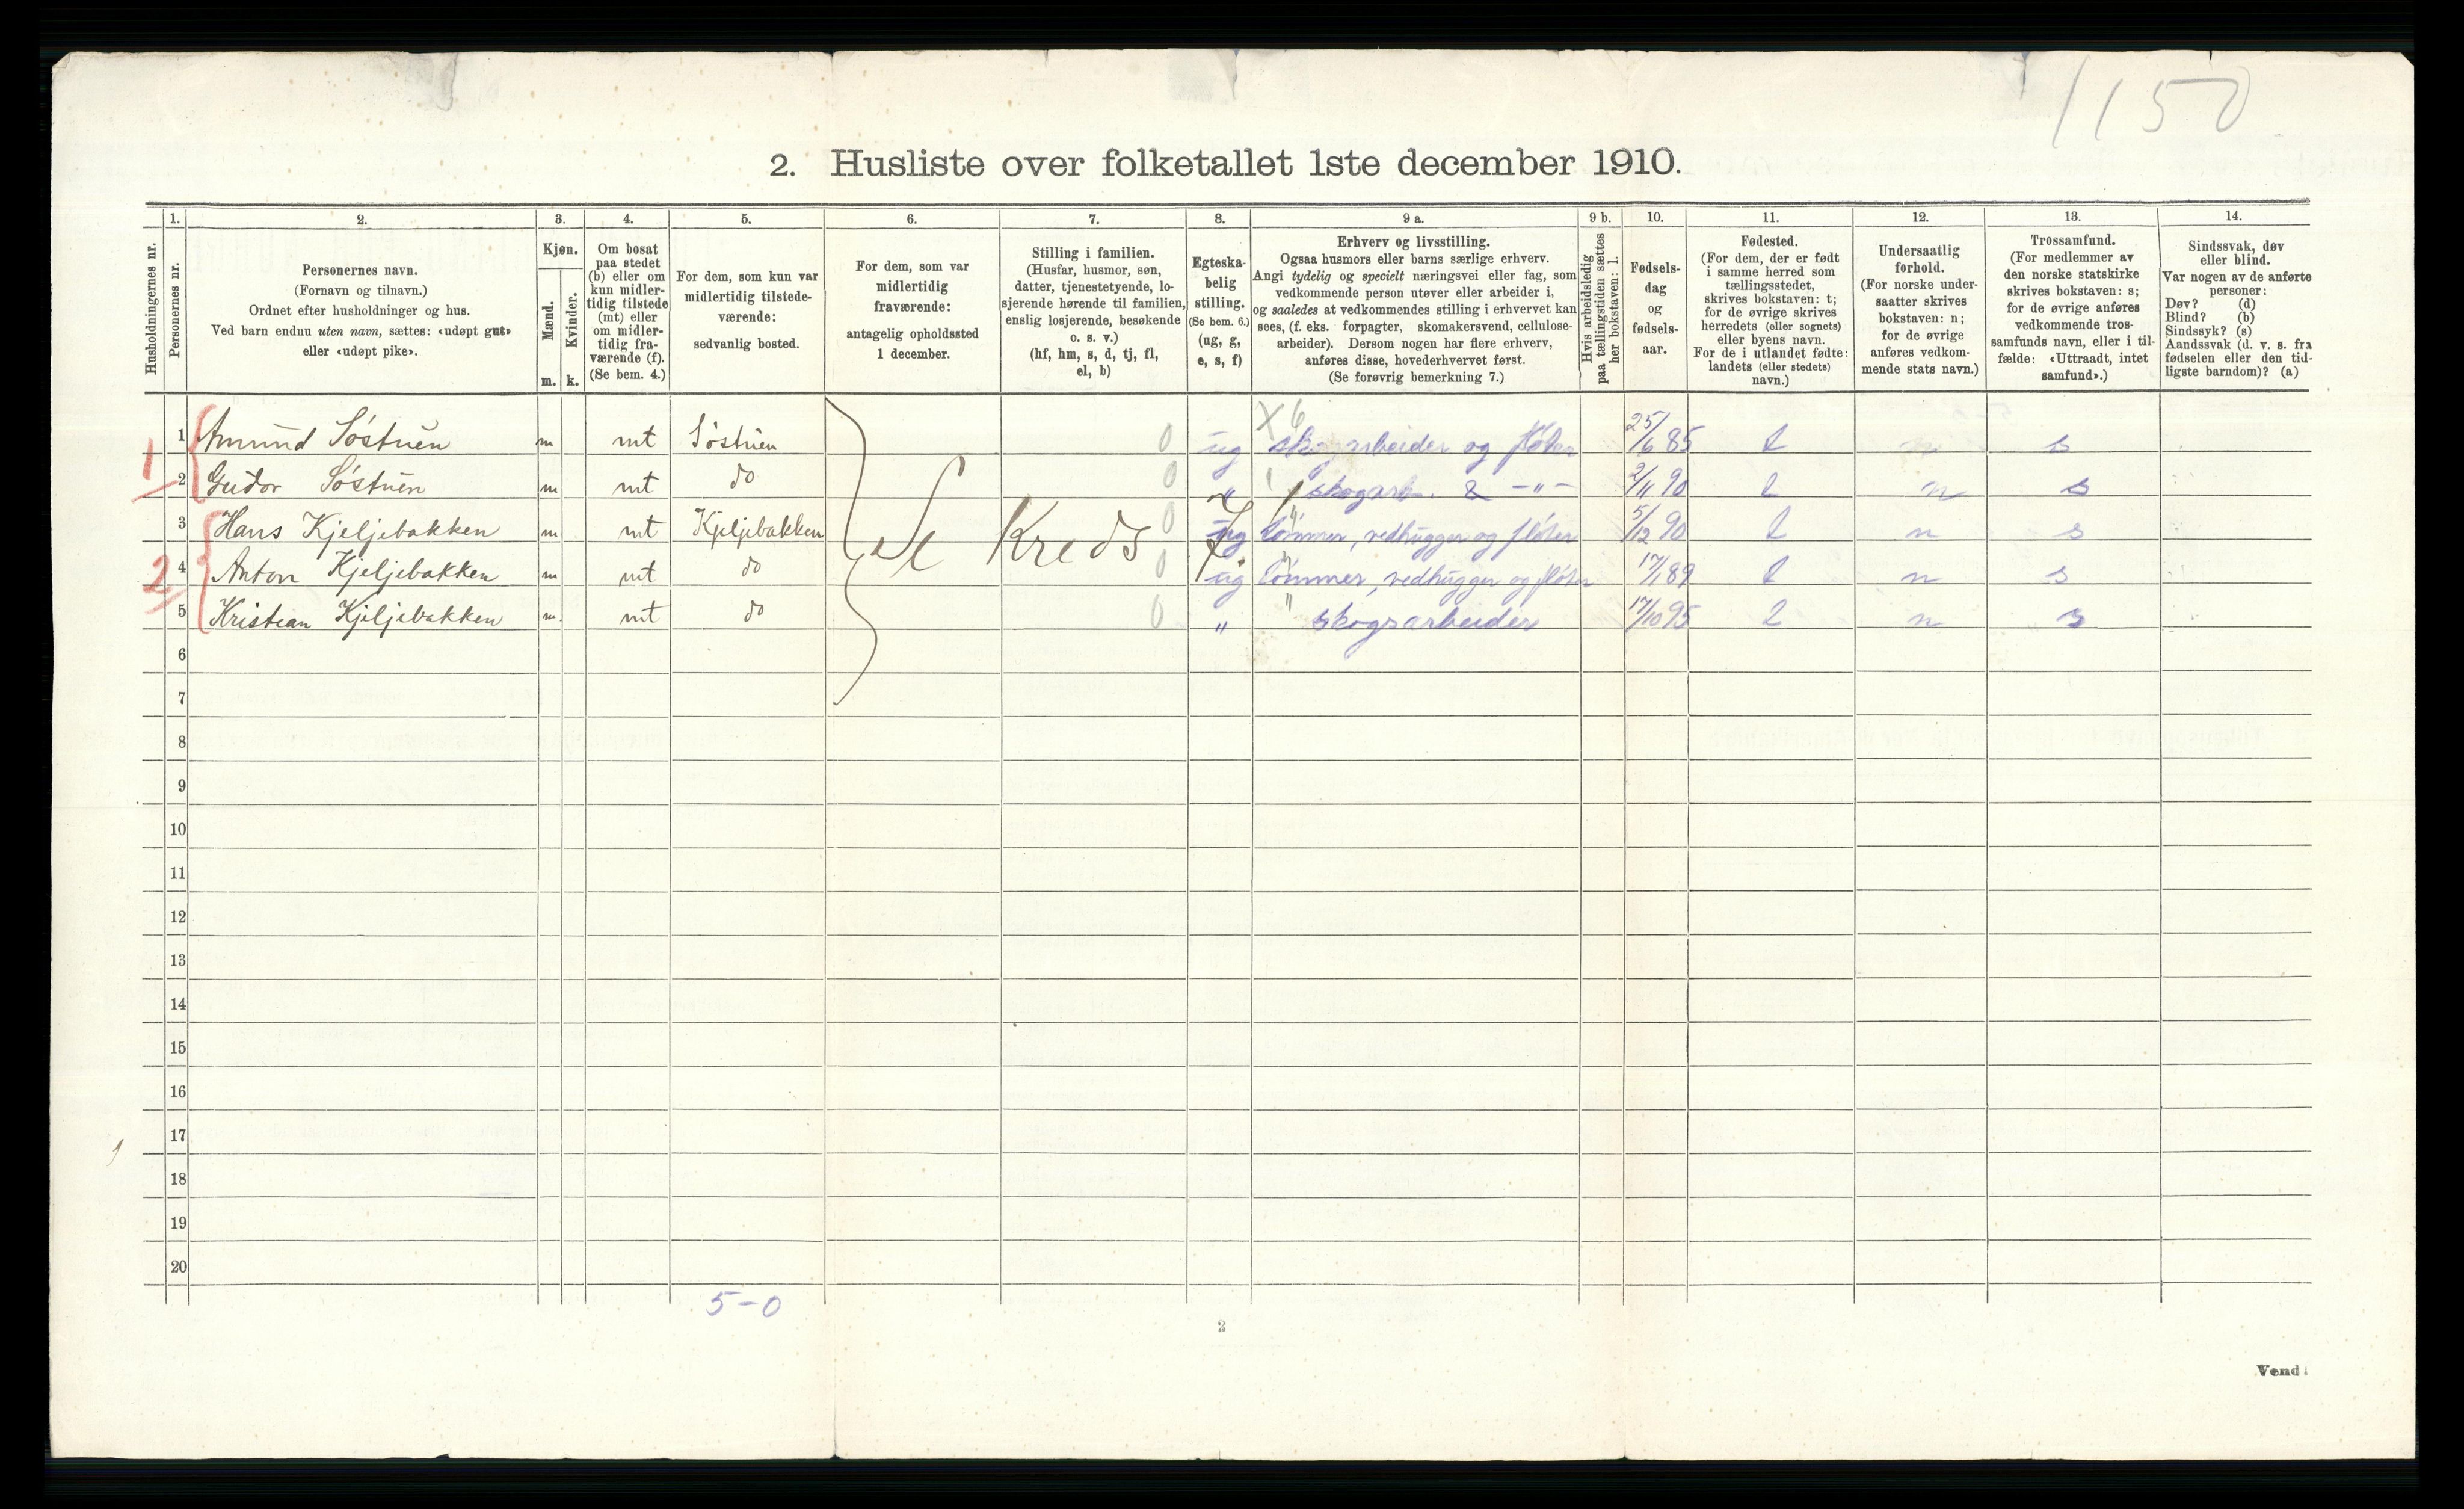 1150
2. Husliste over folketallet 1ste december 1910.
Husholdningernes nr.
1.
Personernes nr.
2.
Personernes navn.
(Fornavn og tilnavn.)
Ordnet efter husholdninger og hus.
Ved barn endnu uten navn, sættes: «udøpt gut»
eller «udøpt pike».
3.
Kjøn.
Mænd.
Kvinder.
m. k.
4.
Om bosat
paa stedet
(b) eller om
kun midler-
tidig tilstede
(mt) eller
om midler-
tidig fra-
værende (f).
(Se bem. 4.)
5.
For dem, som kun var
midlertidig tilstede-
værende:
sedvanlig bosted.
6.
For dem, som var
midlertidig
fraværende:
antagelig opholdssted
1 december.
7.
Stilling i familien.
(Husfar, husmor, søn,
datter, tjenestetyende, lo-
sjerende hørende til familien,
enslig losjerende, besøkende
o. s. v.)
(hf, hm, s, d, tj, fl,
el, b)
8.
Egteska-
belig
stilling.
(Se bem. 6.)
(ug, g,
e, s, f)
9 a.
Erhverv og livsstilling.
Ogsaa husmors eller barns særlige erhverv.
Angi tydelig og specielt næringsvei eller fag, som
vedkommende person utøver eller arbeider i,
og saaledes at vedkommendes stilling i erhvervet kan
sees, (f. eks. forpagter, skomakersvend, cellulose-
arbeider). Dersom nogen har flere erhverv,
anføres disse, hovederhvervet først.
(Se forøvrig bemerkning 7.)
9 b.
Hvis arbeidsledig
paa tællingstiden sættes
her bokstaven: l.
10.
Fødsels-
dag
og
fødsels-
aar.
11.
Fødested.
(For dem, der er født
i samme herred som
tællingsstedet,
skrives bokstaven: t;
for de øvrige skrives
herredets (eller sognets)
eller byens navn.
For de i utlandet fødte:
landets (eller stedets)
navn.)
12.
Undersaatlig
forhold.
(For norske under-
saatter skrives
bokstaven: n;
for de øvrige
anføres vedkom-
mende stats navn.)
13.
Trossamfund.
(For medlemmer av
den norske statskirke
skrives bokstaven: s;
for de øvrige anføres
vedkommende tros-
samfunds navn, eller i til-
fælde: «Uttraadt, intet
samfund».)
14.
Sindssvak, døv
eller blind.
Var nogen av de anførte
personer:
Døv? (d)
Blind? (b)
Sindssyk? (s)
Aandssvak (d. v. s. fra
fødselen eller den tid-
ligste barndom)? (a)
X 6
1 1 Amund Søstuen m mt Søstuen 0 ug skogarbeider og fløter 25/6 85 t n s
2 Gudor Søstuen m mt do 0 " skogarb. & -"- 2/11 90 t n s
2 3 Hans Kjeljebakken m mt Kjeljebakken 0 ug tømmer, vedhugger og fløter 5/12 90 t n s
Se Kreds 7.
4 Anton Kjeljebakken m mt do 0 ug tømmer, vedhugger og fløter 17/1 89 t n s
5 Kristian Kjeljebakken m. mt do 0 " skogsarbeider 17/10 95 t n s
6
7
8
9
10
11
12
13
14
15
16
17
18
19
20
5-0
2
Vend